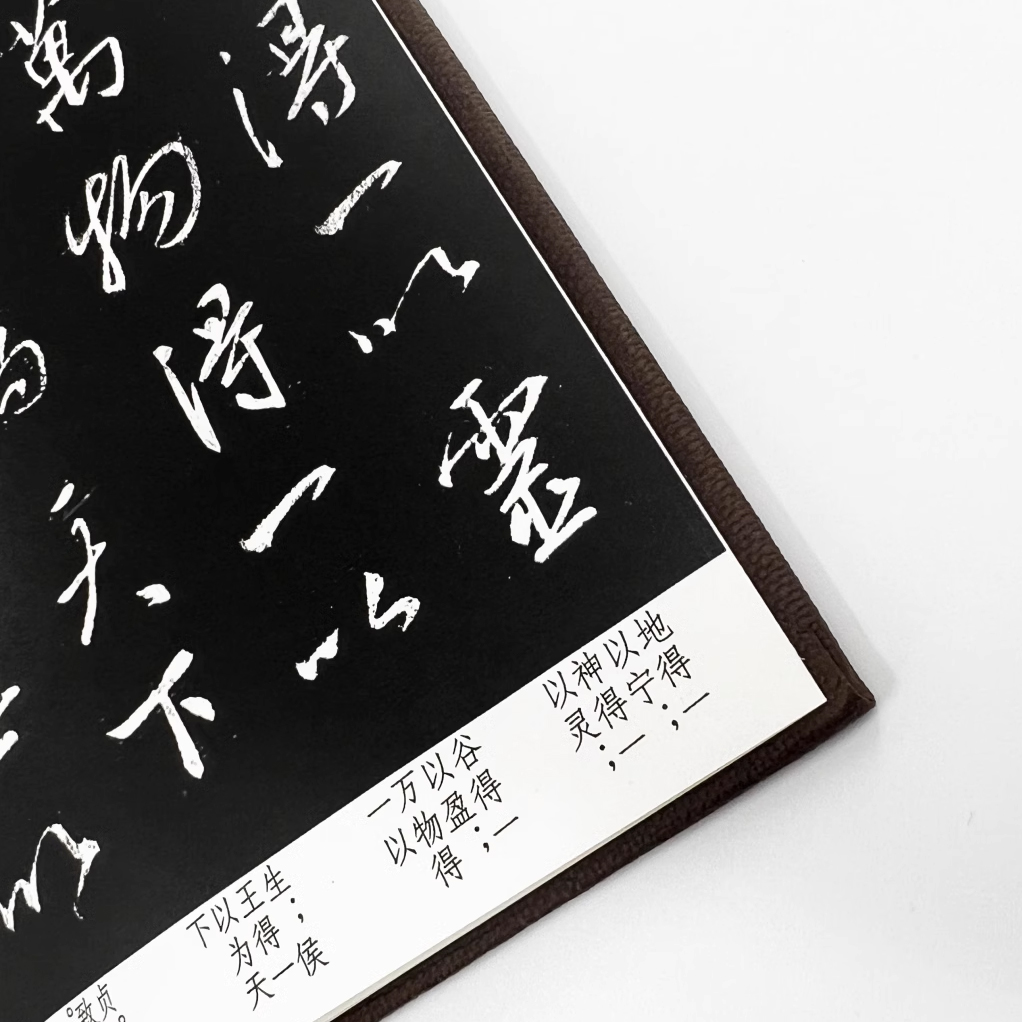 得一以靈
萬物得一以
為天下
一以
地得一
以宁；
神得一
以灵；
谷得一
以盈；
万物得
一以
生；侯
王得一
以为天
下
贞。
致